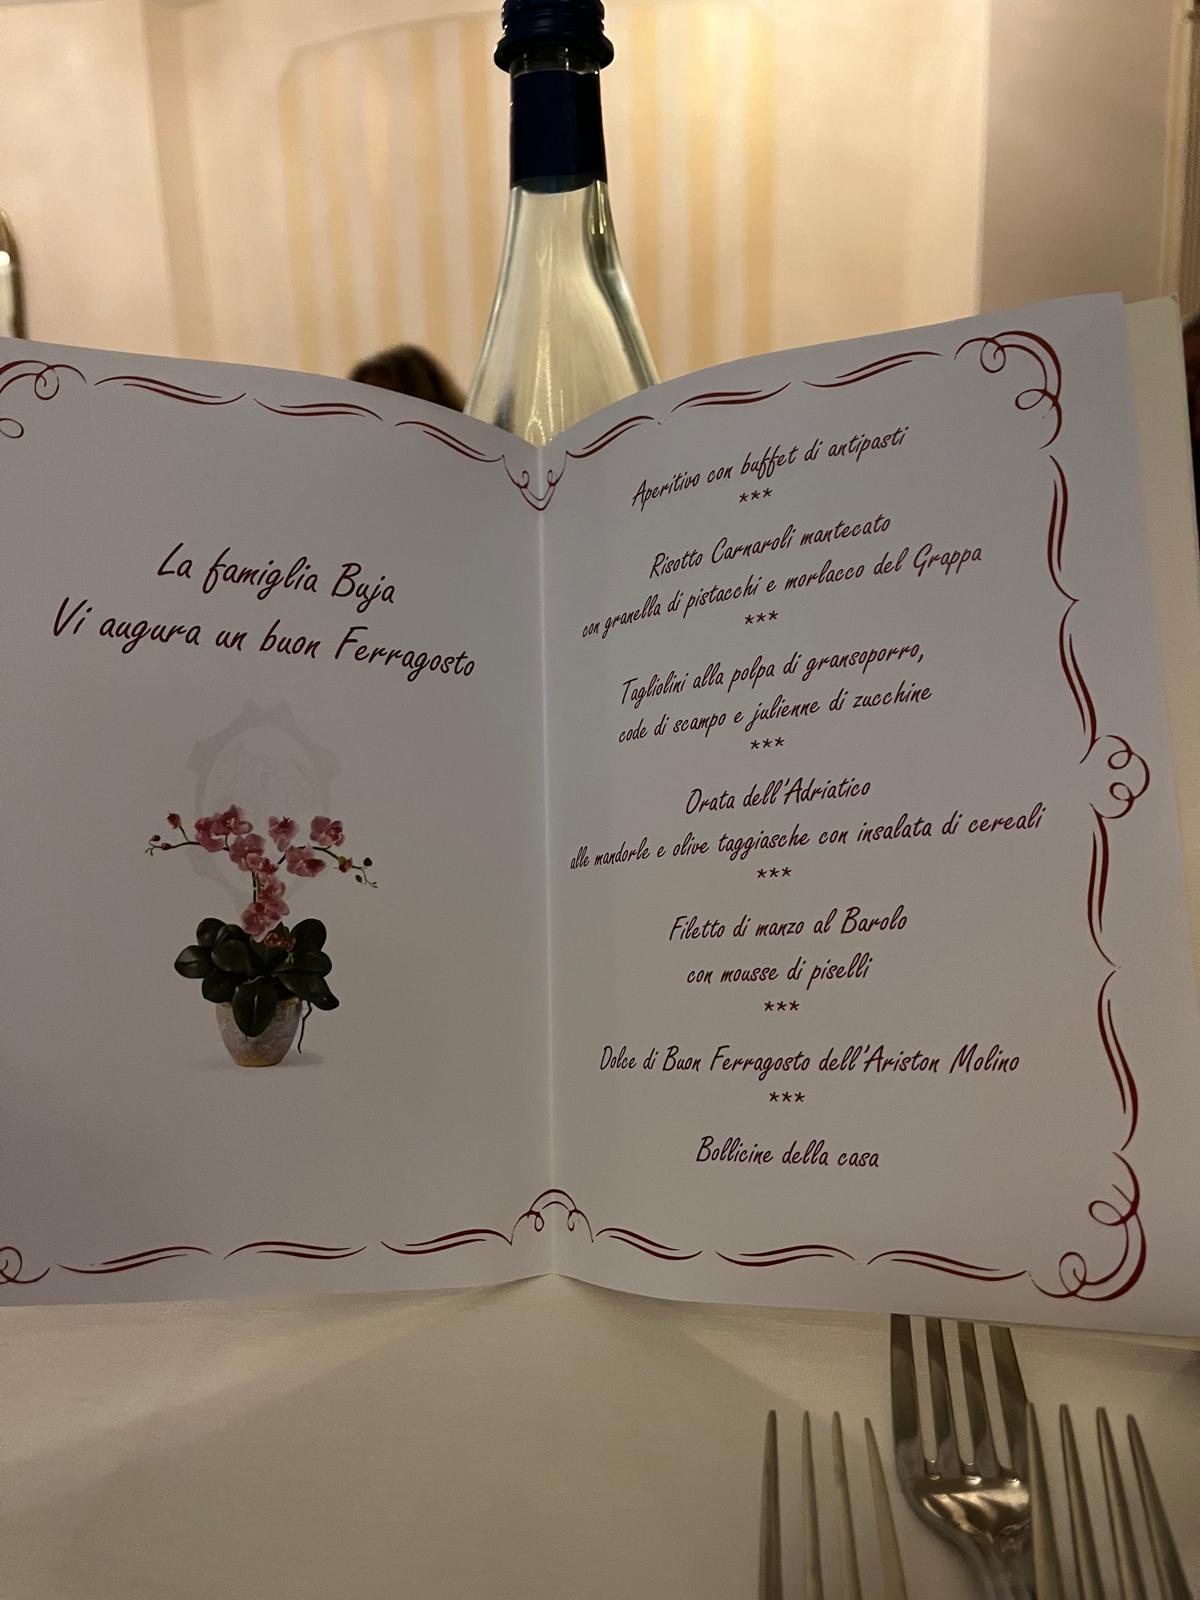 La famiglia Buja
Vi augura un buon Ferragosto
Aperitivo con buffet di antipasti
***
Risotto Carnaroli mantecato
con granella di pistacchi e morlacco del Grappa
***
Tagliolini alla polpa di gransoporro,
code di scampo e julienne di zucchine
***
Orata dell'Adriatico
alle mandorle e olive taggiasche con insalata di cereali
***
Filetto di manzo al Barolo
con mousse di piselli
***
Dolce di Buon Ferragosto dell'Ariston Molino
***
Bollicine della casa